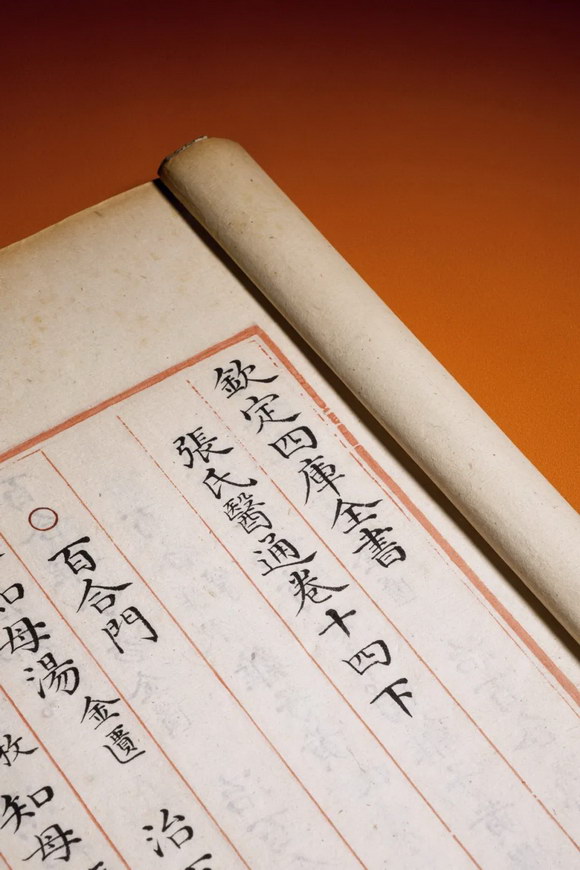 欽定四庫全書
張氏醫通卷十四下
○百合門
母湯 金匱 治
枚 知母